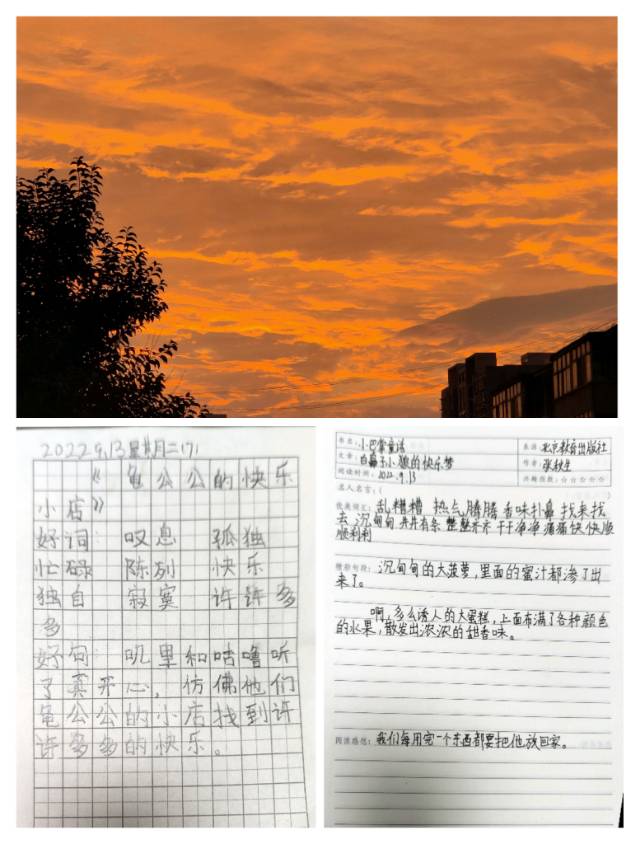 2022.9.13星期二(7)
《龟公公的快乐
小店》
好词 叹息 孤独
忙碌 陈列 快乐
独自 寂寞 许许多
多
好句 叽里和咕噜听
了真开心,仿佛他们
龟公公的小店找到许
许多多的快乐。
书名:小巴掌童话 来源:北京教育出版社
文章:白鼻子小狼的快乐梦 作者:张秋生
阅读时间:2022.9.13 推荐指数:☆☆☆☆☆
名人名言:(
优美词汇:乱糟糟 热气腾腾 香味扑鼻 找来找
去 沉甸甸 井井有条 整整齐齐 干干净净 痛痛快快 顺
顺利利
精彩句段:沉甸甸的大菠萝,里面的蜜汁都渗了出
来了。
啊,多么诱人的大蛋糕,上面布满了各种颜色
的水果,散发出浓浓的甜香味。
阅读感悟:我们每用完一个东西都要把他放回家。